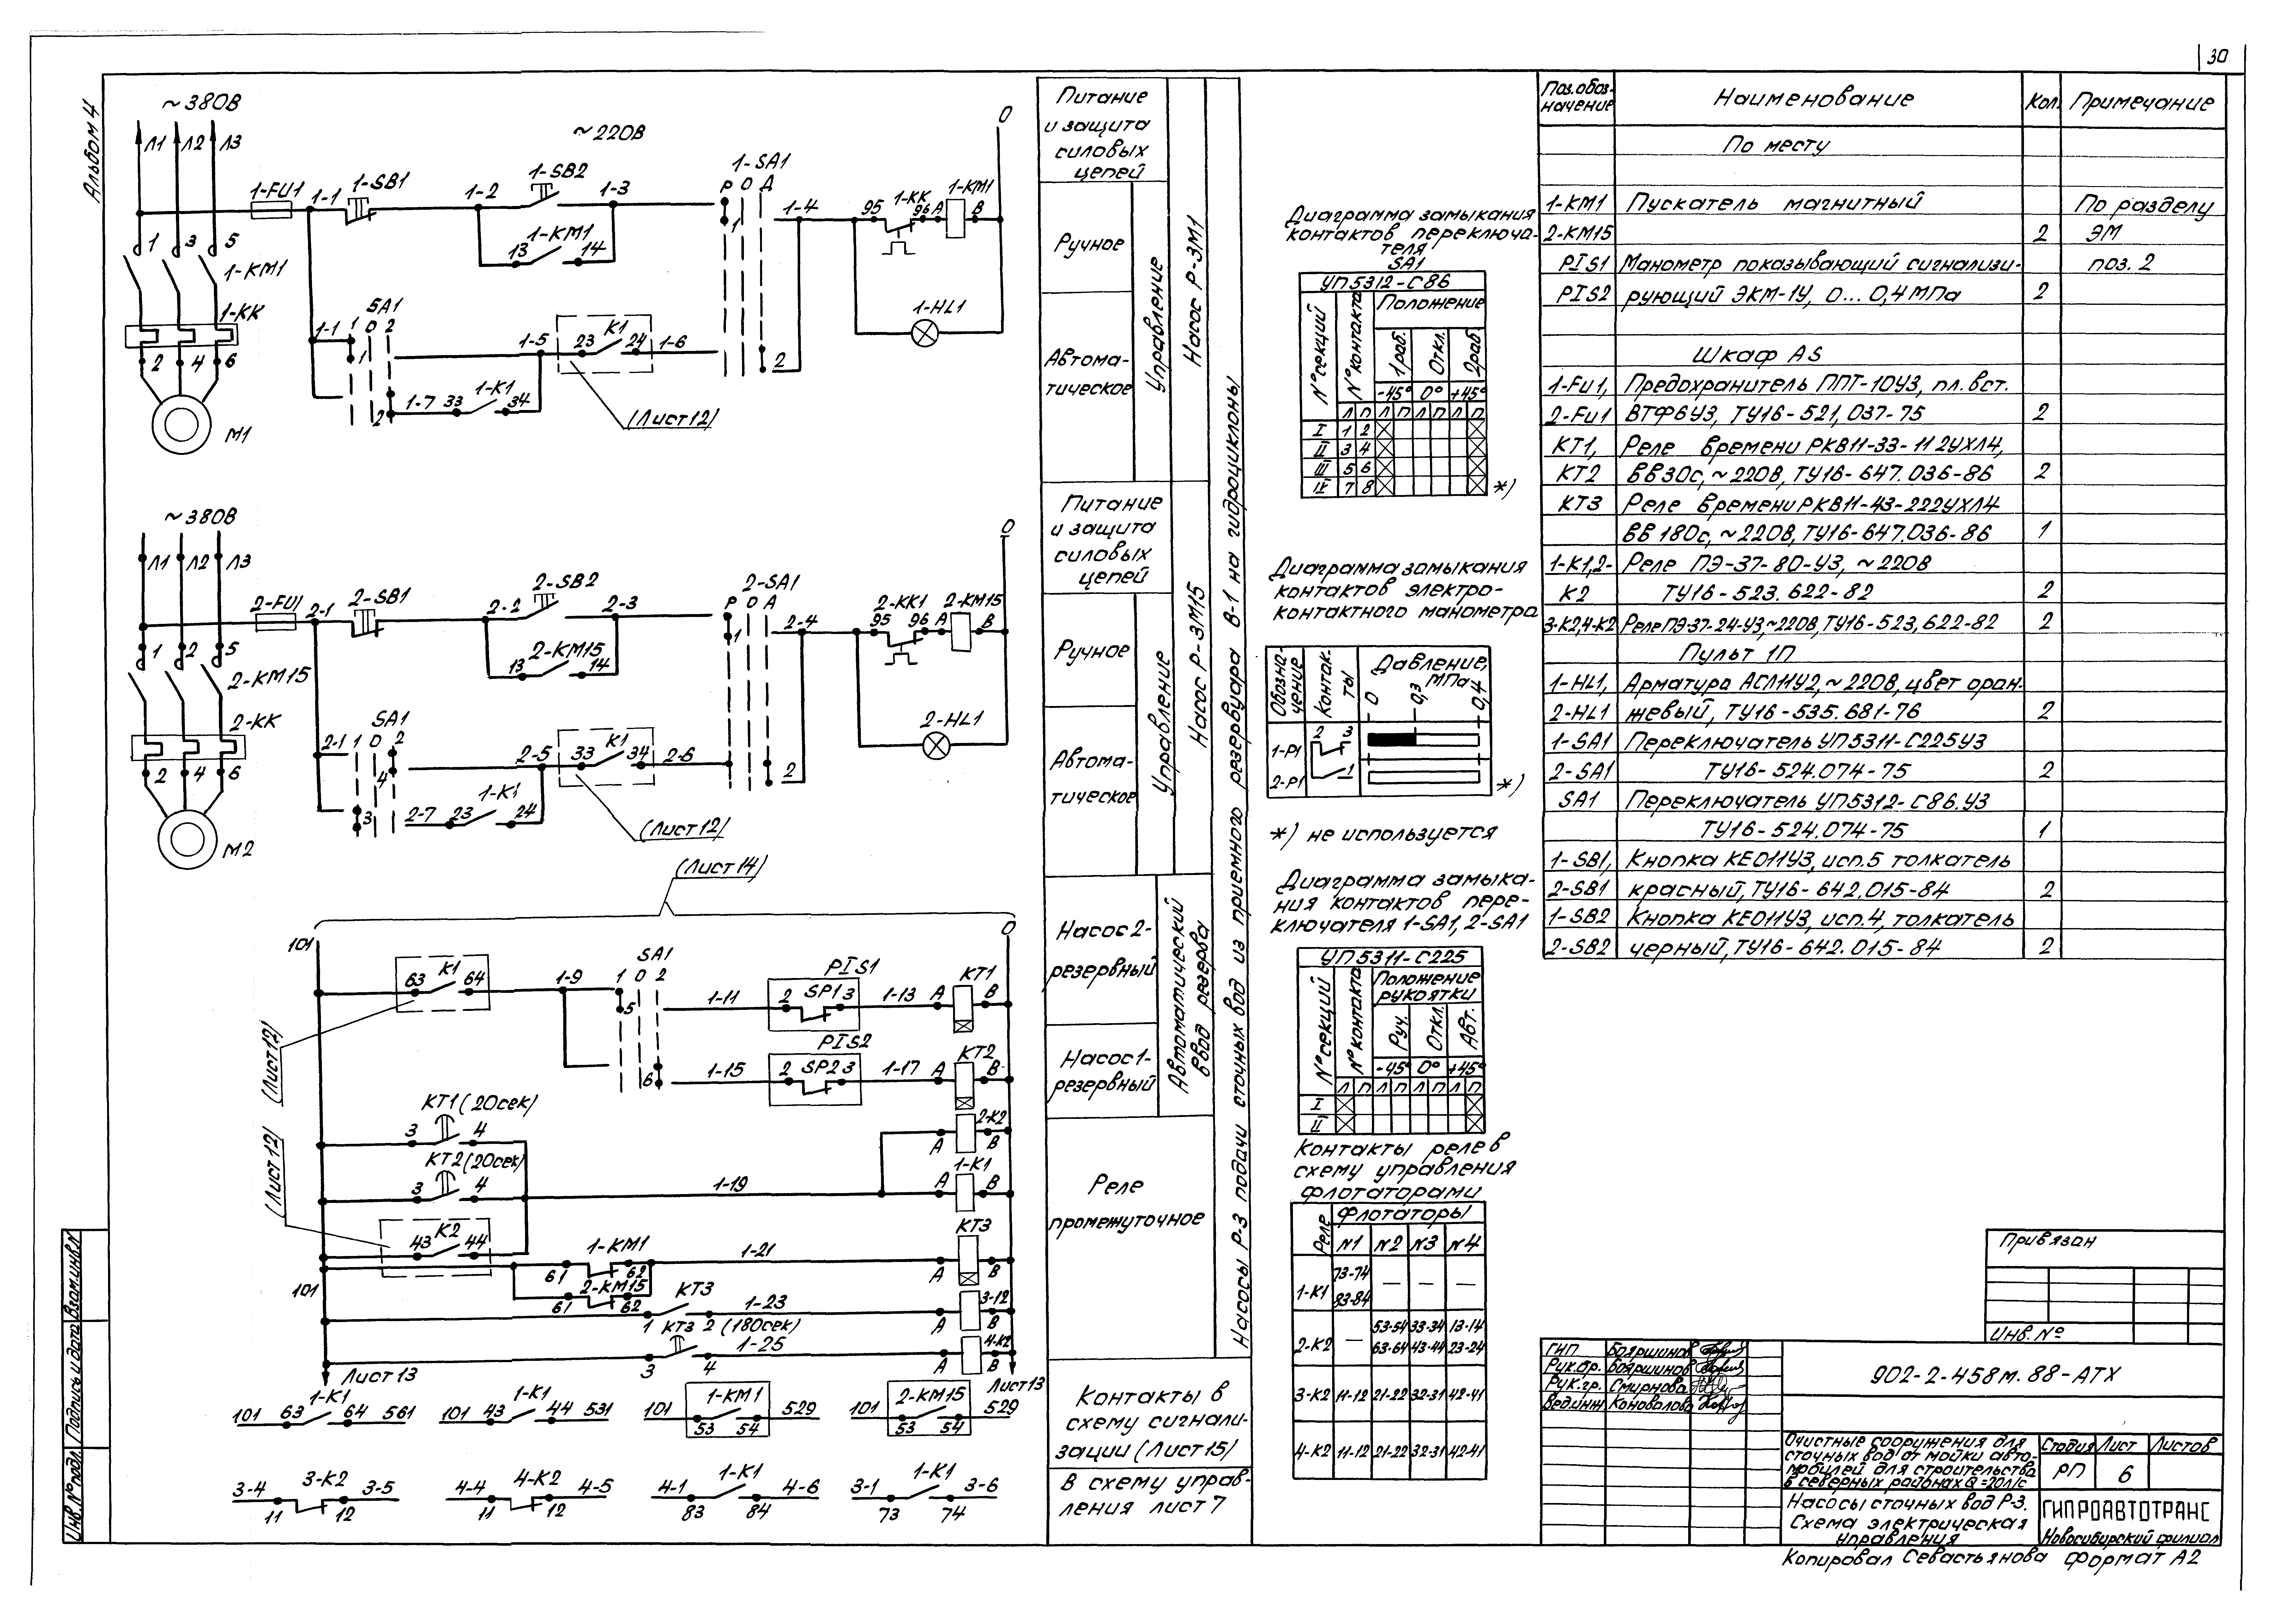 30
Альбом 4
~380В
Л1 Л2 Л3
~220В
1-FU1 1-1 1-SB1 1-2 1-SB2 1-3 1-SA1
Р О А
1 1-4 95 1-КК 96 А 1-КМ1 В О
13 1-КМ1 14
1 3 5
1-КМ1
1-КК
2 4 6
М1
SA1
1-1 1 0 2
1
1-5 23 К1 24 1-6 2
2 1-7 33 1-К1 34
(Лист12)
1-HL1
~380В
Л1 Л2 Л3
2-FU1 2-1 2-SB1 2-2 2-SB2 2-3 2-SA1
Р О А
1 2-4 95 2-КК1 96 А 2-КМ15 В О
13 2-КМ15 14
1 2 5
2-КМ15
2-КК
2 4 6
М2
SA1
2-1 1 0 2
4 2-5 33 К1 34 2-6 2
3 2-7 23 1-К1 24
(Лист12)
2-HL1
(Лист14)
101 О
63 К1 64 1-9 SA1
1 0 2
5 1-11 PIS1
2 SP1 3 1-13 А КТ1 В
(Лист12)
6 1-15 PIS2
2 SP2 3 1-17 А КТ2 В
КТ1(20сек)
3 4
КТ2(20сек)
3 4
(Лист12)
1-19 А 2-К2 В
А 1-К1 В
К2
43 44
101
61 1-КМ1 62 1-21 А КТ3 В
61 2-КМ15 62
КТ3
1 2 1-23 А 3-12 В
КТ3 (180сек)
3 4 1-25 А 4-К2 В
Лист13 Лист13
101 63 1-К1 64 561
101 43 1-К1 44 531
101 1-КМ1 529
53 54
101 2-КМ15 529
53 54
3-4 3-К2 3-5
11 12
4-4 4-К2 4-5
11 12
4-1 1-К1 4-6
83 84
3-1 1-К1 3-6
73 74
Питание
и защита
силовых
цепей
Ручное
Автома-
тическое
Управление
Насос Р-3М1
Питание
и защита
силовых
цепей
Ручное
Автома-
тическое
Управление
Насос Р-3М15
Насос 2-
резервный
Насос 1-
резервный
Автоматический
ввод резерва
Реле
промежуточное
Насосы Р-3 подачи сточных вод из приемного резервуара В-1 на гидроциклоны
Контакты в
схему сигнали-
зации (Лист15)
В схему управ-
ления лист 7
Диаграмма замыкания
контактов переключа-
теля
SA1
УП5312-С86
N° секций
N° контакта
Положение
1раб. Откл. 2раб
-45° 0° +45°
Л П Л П Л П Л П
I 1 2
II 3 4
III 5 6
IV 7 8
*)
Диаграмма замыкания
контактов электро-
контактного манометра
Обозна-
чение
Контак-
ты
Давление,
МПа
0 0,3 0,4
1-Р1 2 3
2-Р1 1
*)
*) не используется
Диаграмма замыка-
ния контактов пере-
ключателя 1-SA1, 2-SA1
УП5311-С225
N° секций
N° контакта
Положение
рукоятки
Руч. Откл. Авт.
-45° 0° +45°
Л П Л П Л П Л П
I
II
Контакты реле в
схему управления
флотаторами
Реле Флотаторы
N1 N2 N3 N4
1-К1 73-74 — — —
83-84
2-К2 — 53-54 33-34 13-14
63-64 43-44 23-24
3-К2 11-12 21-22 32-31 42-41
4-К2 11-12 21-22 32-31 42-41
Поз.обоз-
начение
Наименование Кол. Примечание
По месту
1-КМ1 Пускатель магнитный По разделу
2-КМ15 2 ЭМ
PIS1 Манометр показывающий сигнализи- поз. 2
PIS2 рующий ЭКМ-1У, 0...0,4МПа 2
Шкаф AS
1-FU1, Предохранитель ППТ-10У3, пл.вст.
2-FU1 ВТФ6У3, ТУ16-521,037-75 2
КТ1, Реле времени РКВ11-33-112УХЛ4,
КТ2 ВВ30с,~220В,ТУ16-647.036-86 2
КТ3 Реле времени РКВ11-43-222УХЛ4
ВВ180с,~220В,ТУ16-647.036-86 1
1-К1,2- Реле ПЭ-37-80-У3, ~220В
К2 ТУ16-523.622-82 2
3-К2,4-К2 Реле ПЭ-37-24-У3,~220В,ТУ16-523,622-82 2
Пульт 1П
1-HL1, Арматура АСЛ11У2,~220В,цвет оран-
2-HL1 жевый, ТУ16-535.681-76 2
1-SA1 Переключатель УП5311-С225У3
2-SA1 ТУ16-524.074-75 2
SA1 Переключатель УП5312-С86.У3
ТУ16-524.074-75 1
1-SB1, Кнопка КЕ011У3, исп.5 толкатель
2-SB1 красный,ТУ16-642.015-84 2
1-SB2 Кнопка КЕ011У3, исп.4, толкатель
2-SB2 черный,ТУ16-642.015-84 2
Привязан
Инв.N°
ГИП Бояршинов
Рук.бр. Бояршинов
Рук.гр. Смирнова
Вед.инж Коновалова
902-2-458м.88-АТХ
Очистные сооружения для
сточных вод от мойки авто-
мобилей для строительства
в северных районах Q=20л/с
Стадия Лист Листов
РП 6
Насосы сточных вод Р-3.
Схема электрическая
управления
ГИПРОАВТОТРАНС
Новосибирский филиал
Копировал Севастьянова Формат А2
Инв.N°подл. Подпись и дата Взам.инв.N